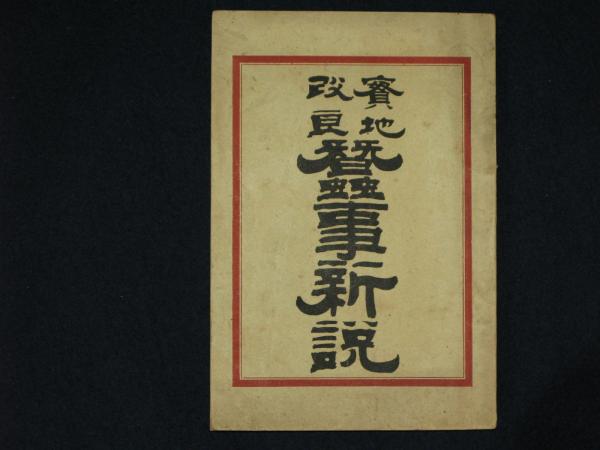 實地
改良
蠶事新説